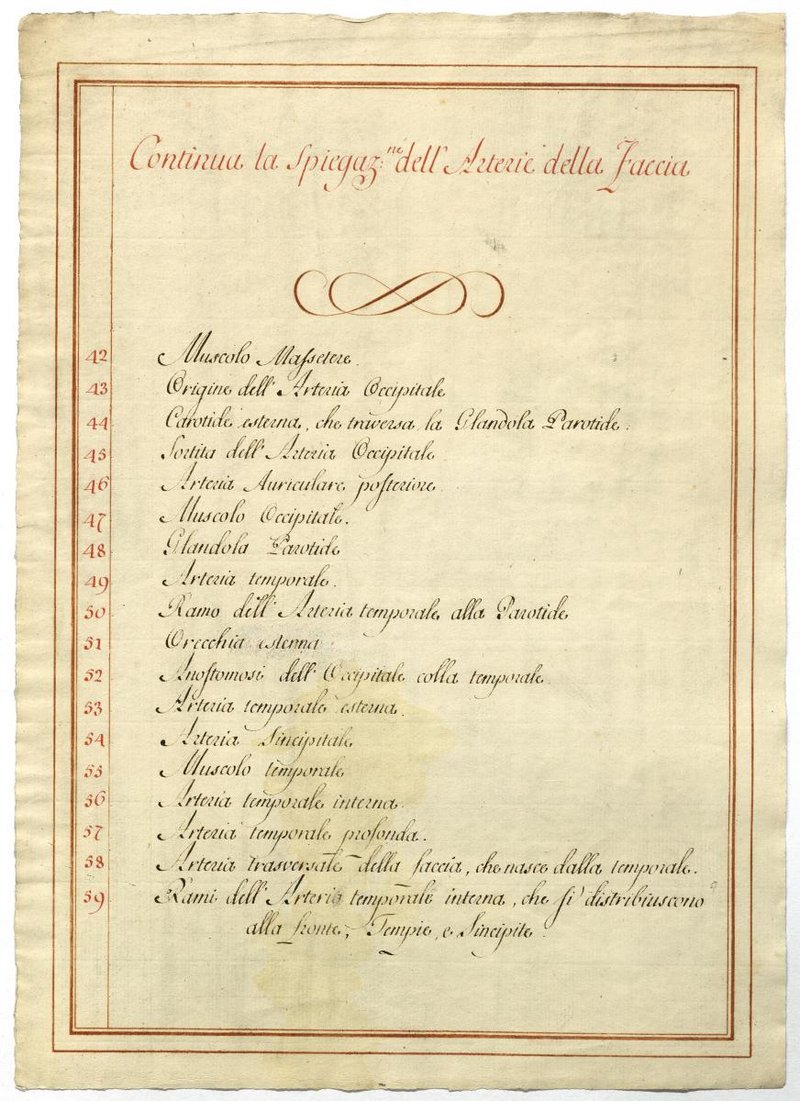 Continua la Spiegaz:ne dell'Arterie della Faccia
42 Muscolo Massetere.
43 Origine dell'Arteria Occipitale
44 Carotide esterna, che traversa la Glandola Parotide.
45 Sortita dell'Arteria Occipitale
46 Arteria Auriculare posteriore
47 Muscolo Occipitale.
48 Glandola Parotide
49 Arteria temporale.
50 Ramo dell'Arteria temporale alla Parotide
51 Orecchia esterna
52 Anostomosi dell'Occipitale colla temporale
53 Arteria temporale esterna.
54 Arteria Sincipitale
55 Muscolo temporale
56 Arteria temporale interna.
57 Arteria temporale profonda.
58 Arteria trasversale della faccia, che nasce dalla temporale.
59 Rami dell'Arteria temporale interna, che si distribuiscono
alla fronte, Tempie, e Sincipite.